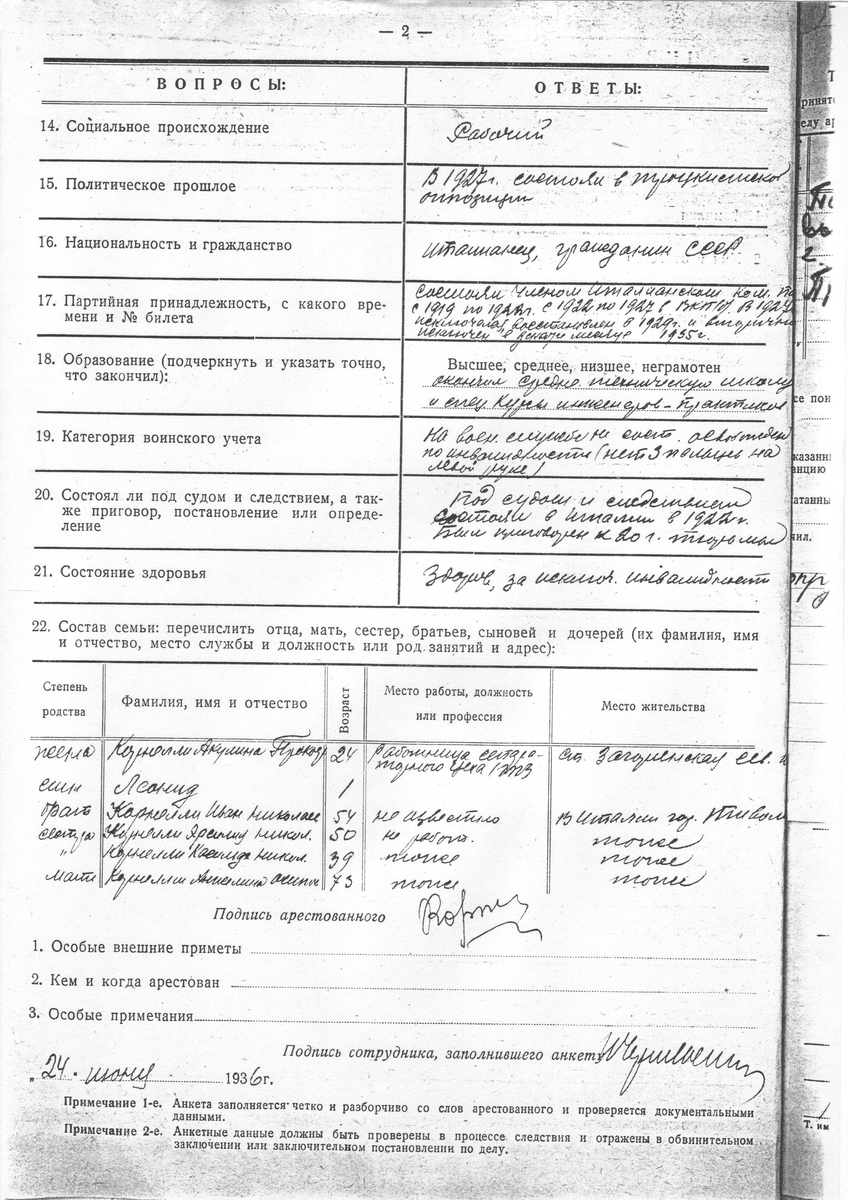 — 2 —
ВОПРОСЫ: ОТВЕТЫ:
14. Социальное происхождение Рабочий
15. Политическое прошлое В 1927г. состоял в троцкистской
оппозиции
16. Национальность и гражданство Итальянец, гражданин СССР
17. Партийная принадлежность, с какого вре-
мени и № билета
Состоял членом Италианском Ком.
с 1919 по 1922г. с 1922 по 1927 в ВКП(б). В 1927
исключался, восстановлен в 1929г. и вторично
исключен в 1935г.
18. Образование (подчеркнуть и указать точно,
что закончил):
Высшее, среднее, низшее, неграмотен
окончил средне техническую школу
и спец. курсы инженеров-практиков
19. Категория воинского учета
На воен. службе не сост. освобожден
по инвалидности (нет 3 пальцев на
левой руке)
20. Состоял ли под судом и следствием, а так-
же приговор, постановление или опреде-
ление
Под судом и следствием
состоял в Италии в 1922г.
был приговорен к 20 г. тюрьмы
21. Состояние здоровья Здоров, за исключ. инвалидности
22. Состав семьи: перечислить отца, мать, сестер, братьев, сыновей и дочерей (их фамилия, имя
и отчество, место службы и должность или род занятий и адрес):
Степень
родства
Фамилия, имя и отчество
Возраст
Место работы, должность
или профессия
Место жительства
жена Корнелли Акулина 24 работница
цеха ст. Загорянская Сев.
сын Леонид 1
брат Корнелли Иван Николаев 54 не известно в Италии гор.
сестра Корнелли Николл. 50 не работ. тоже
" Корнелли Никол. 39 тоже тоже
мать Корнелли Анжелина 73 тоже тоже
Подпись арестованного
1. Особые внешние приметы
2. Кем и когда арестован
3. Особые примечания
Подпись сотрудника, заполнившего анкету
„24. июня 1936г.
Примечание 1-е. Анкета заполняется четко и разборчиво со слов арестованного и проверяется документальными
данными.
Примечание 2-е. Анкетные данные должны быть проверены в процессе следствия и отражены в обвинительном
заключении или заключительном постановлении по делу.